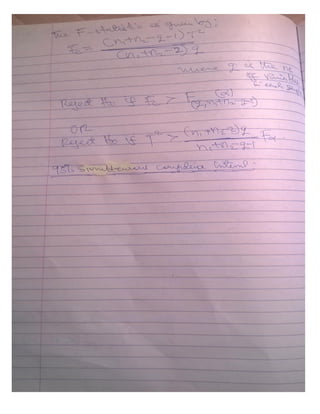 The F-statistic is given by:
Fc = (n₁+n₂-q-1)T² / (n₁+n₂-2)q
where q is the no
of variables
in each
Reject H₀ if Fc > F(α) (q, n₁+n₂-q-1)
OR
Reject H₀ if T² > (n₁+n₂-2)q / n₁+n₂-q-1 Fα...
95% simultaneous confidence interval: